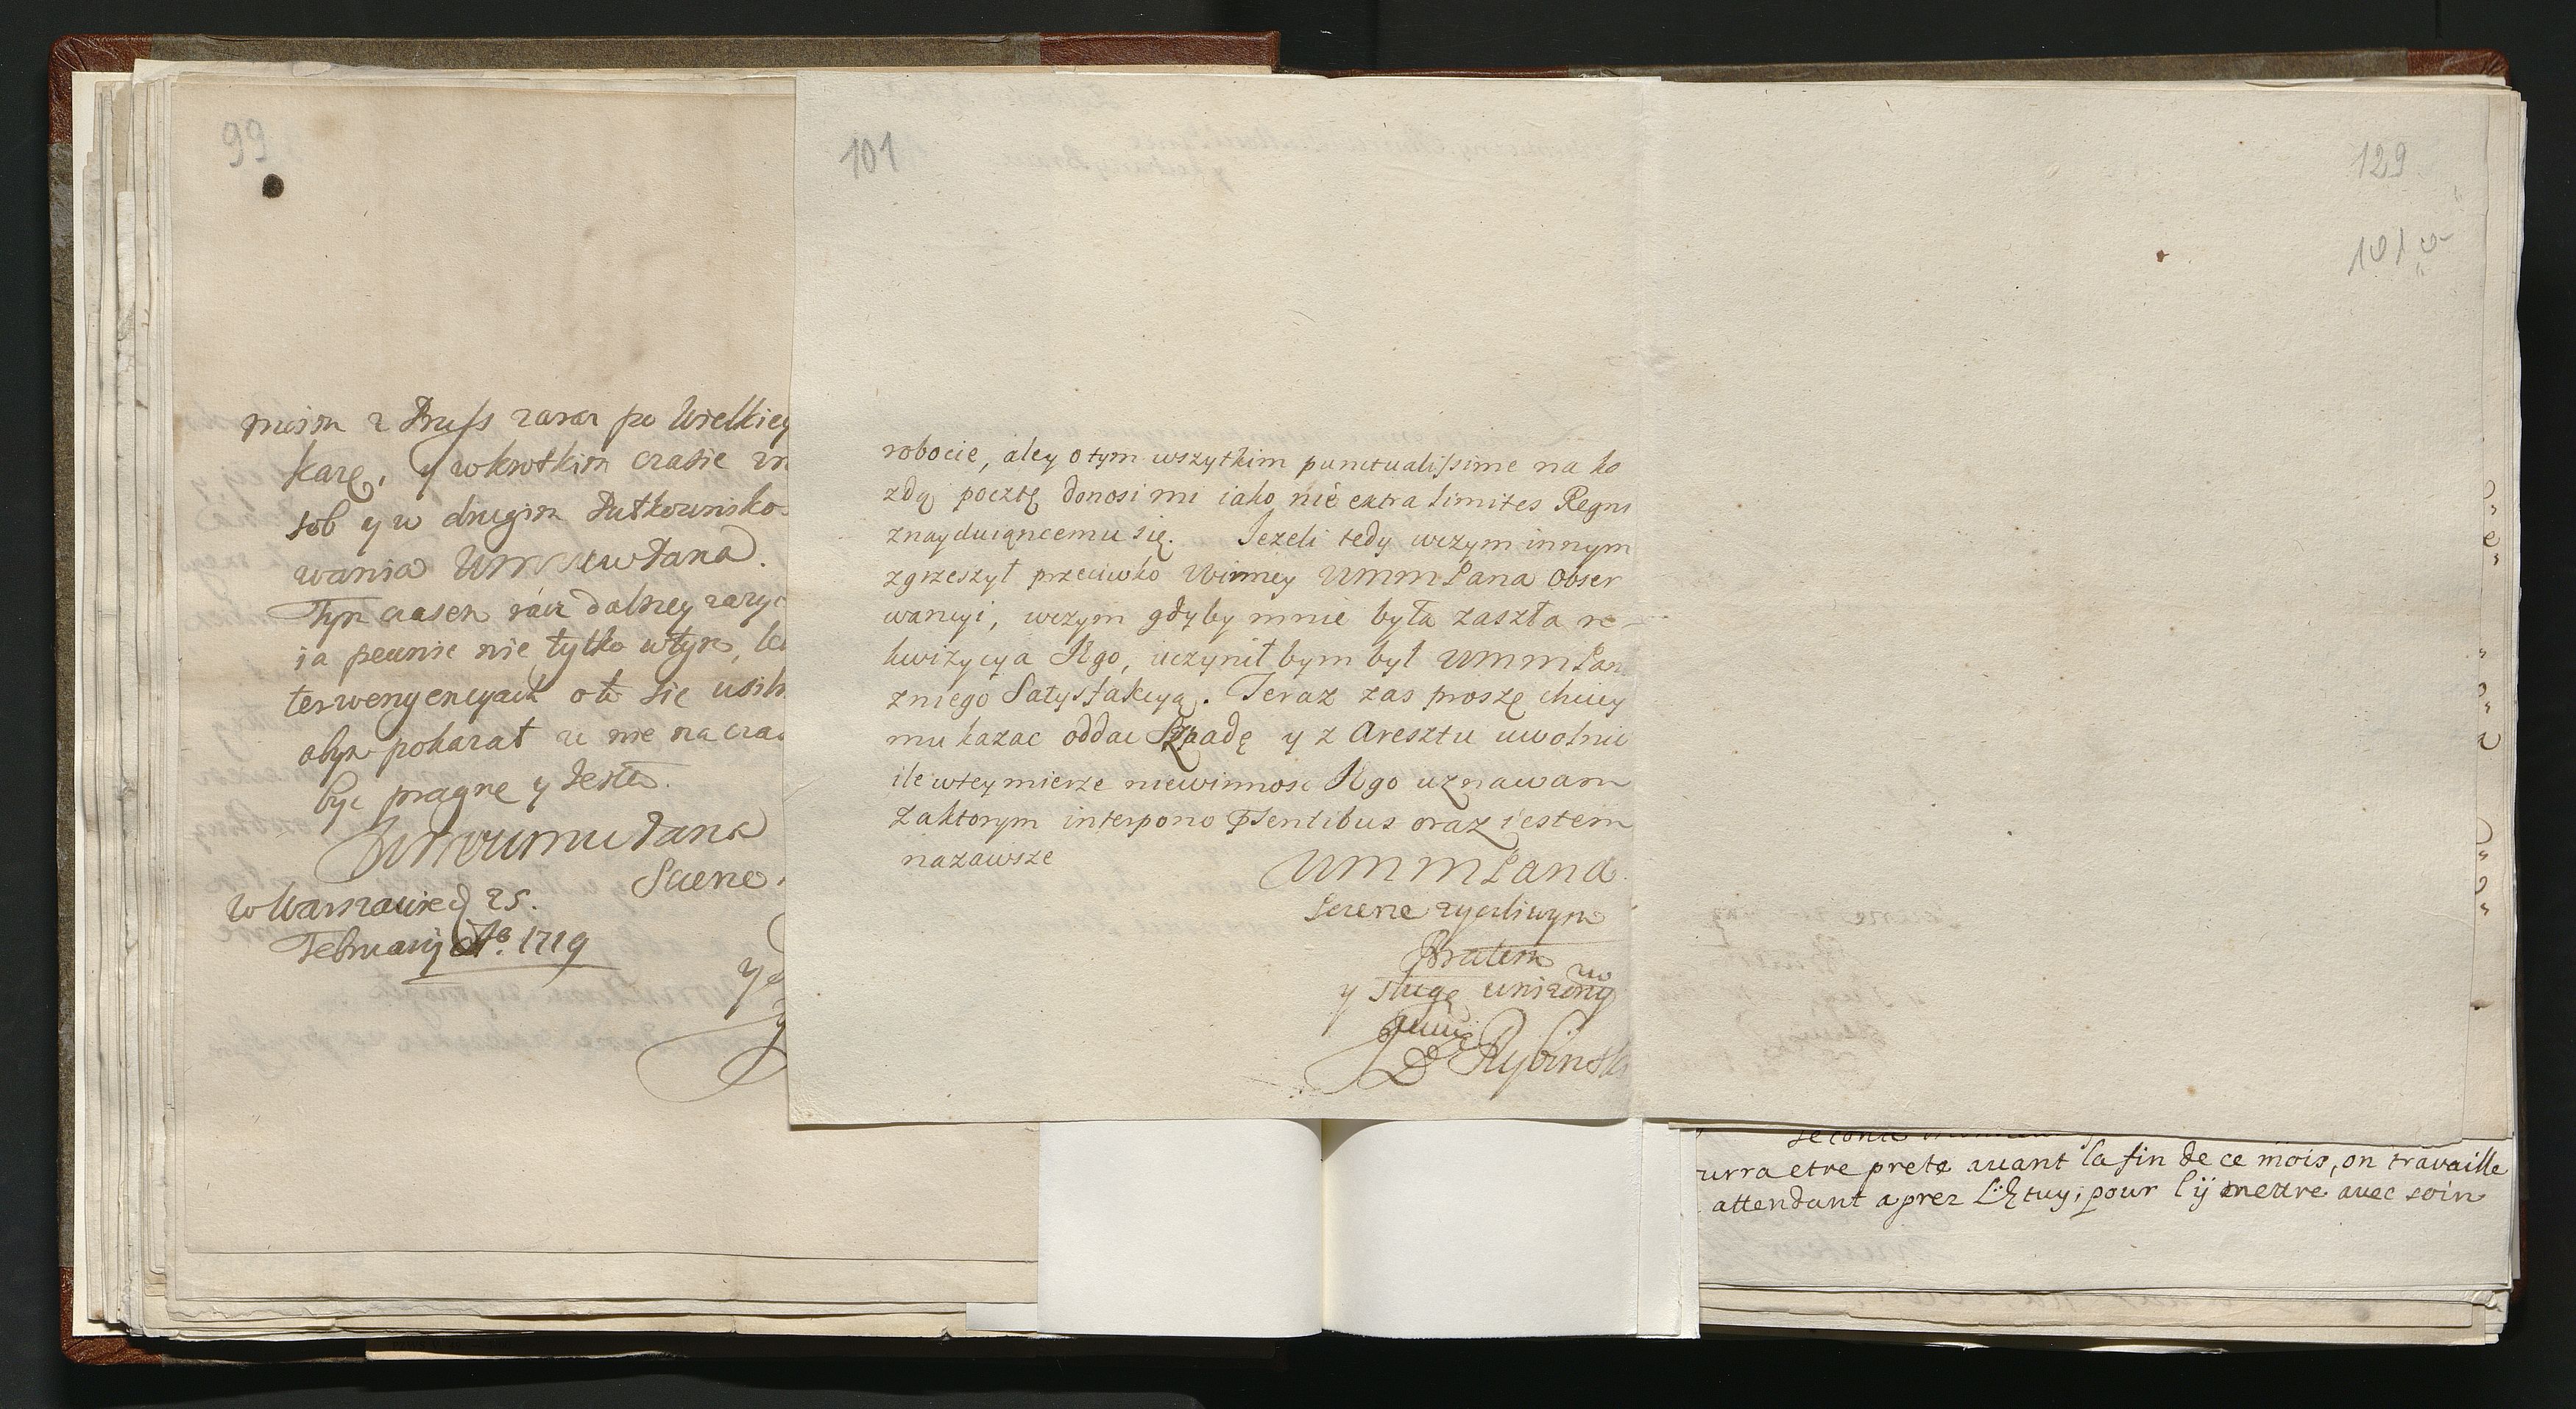 99
misą z Pruss zaraz po Wielkiey
karę, y wkrotkim czasie
sob y w drugim Pułkowniko
wania
Tym czasem racz dalszey
ia pewnie nie tylko wtym,
terwenyencyach o to się
abym pokazał ze nie na
być pragnę y Jestem.
Pana
Sczerze
w Warszawie d 25.
February Ao. 1719
101
robocie, aley o tym wszytkim punctualissime na ko
zdą pocztę donosi mi iako nie extra limites Regni
znayduiącemu się. Jezeli tedy wczym innym
zgrzeszył przeciwko Winney UMMPana Obser
wancyi, wczym gdyby mnie była zaszła re-
kwizycya Jego, uczynił bym był UMMPan
zniego Satysfakcyą. Teraz zas proszę chciey
mu kazac oddac Szpadę y z Aresztu uwolnic
ile wtey mierze niewinnosc Jego uznawam
zaktorym interpono Psentibus oraz iestem
nazawsze
UMMPana
Sczerze zyczliwym
Bratem
y sługą unizonym
Rybinski
129
101
urra etre prete auant la fin de ce mois, on travaille
attendant aprez L'Etuy, pour l'ij mettre avec soin